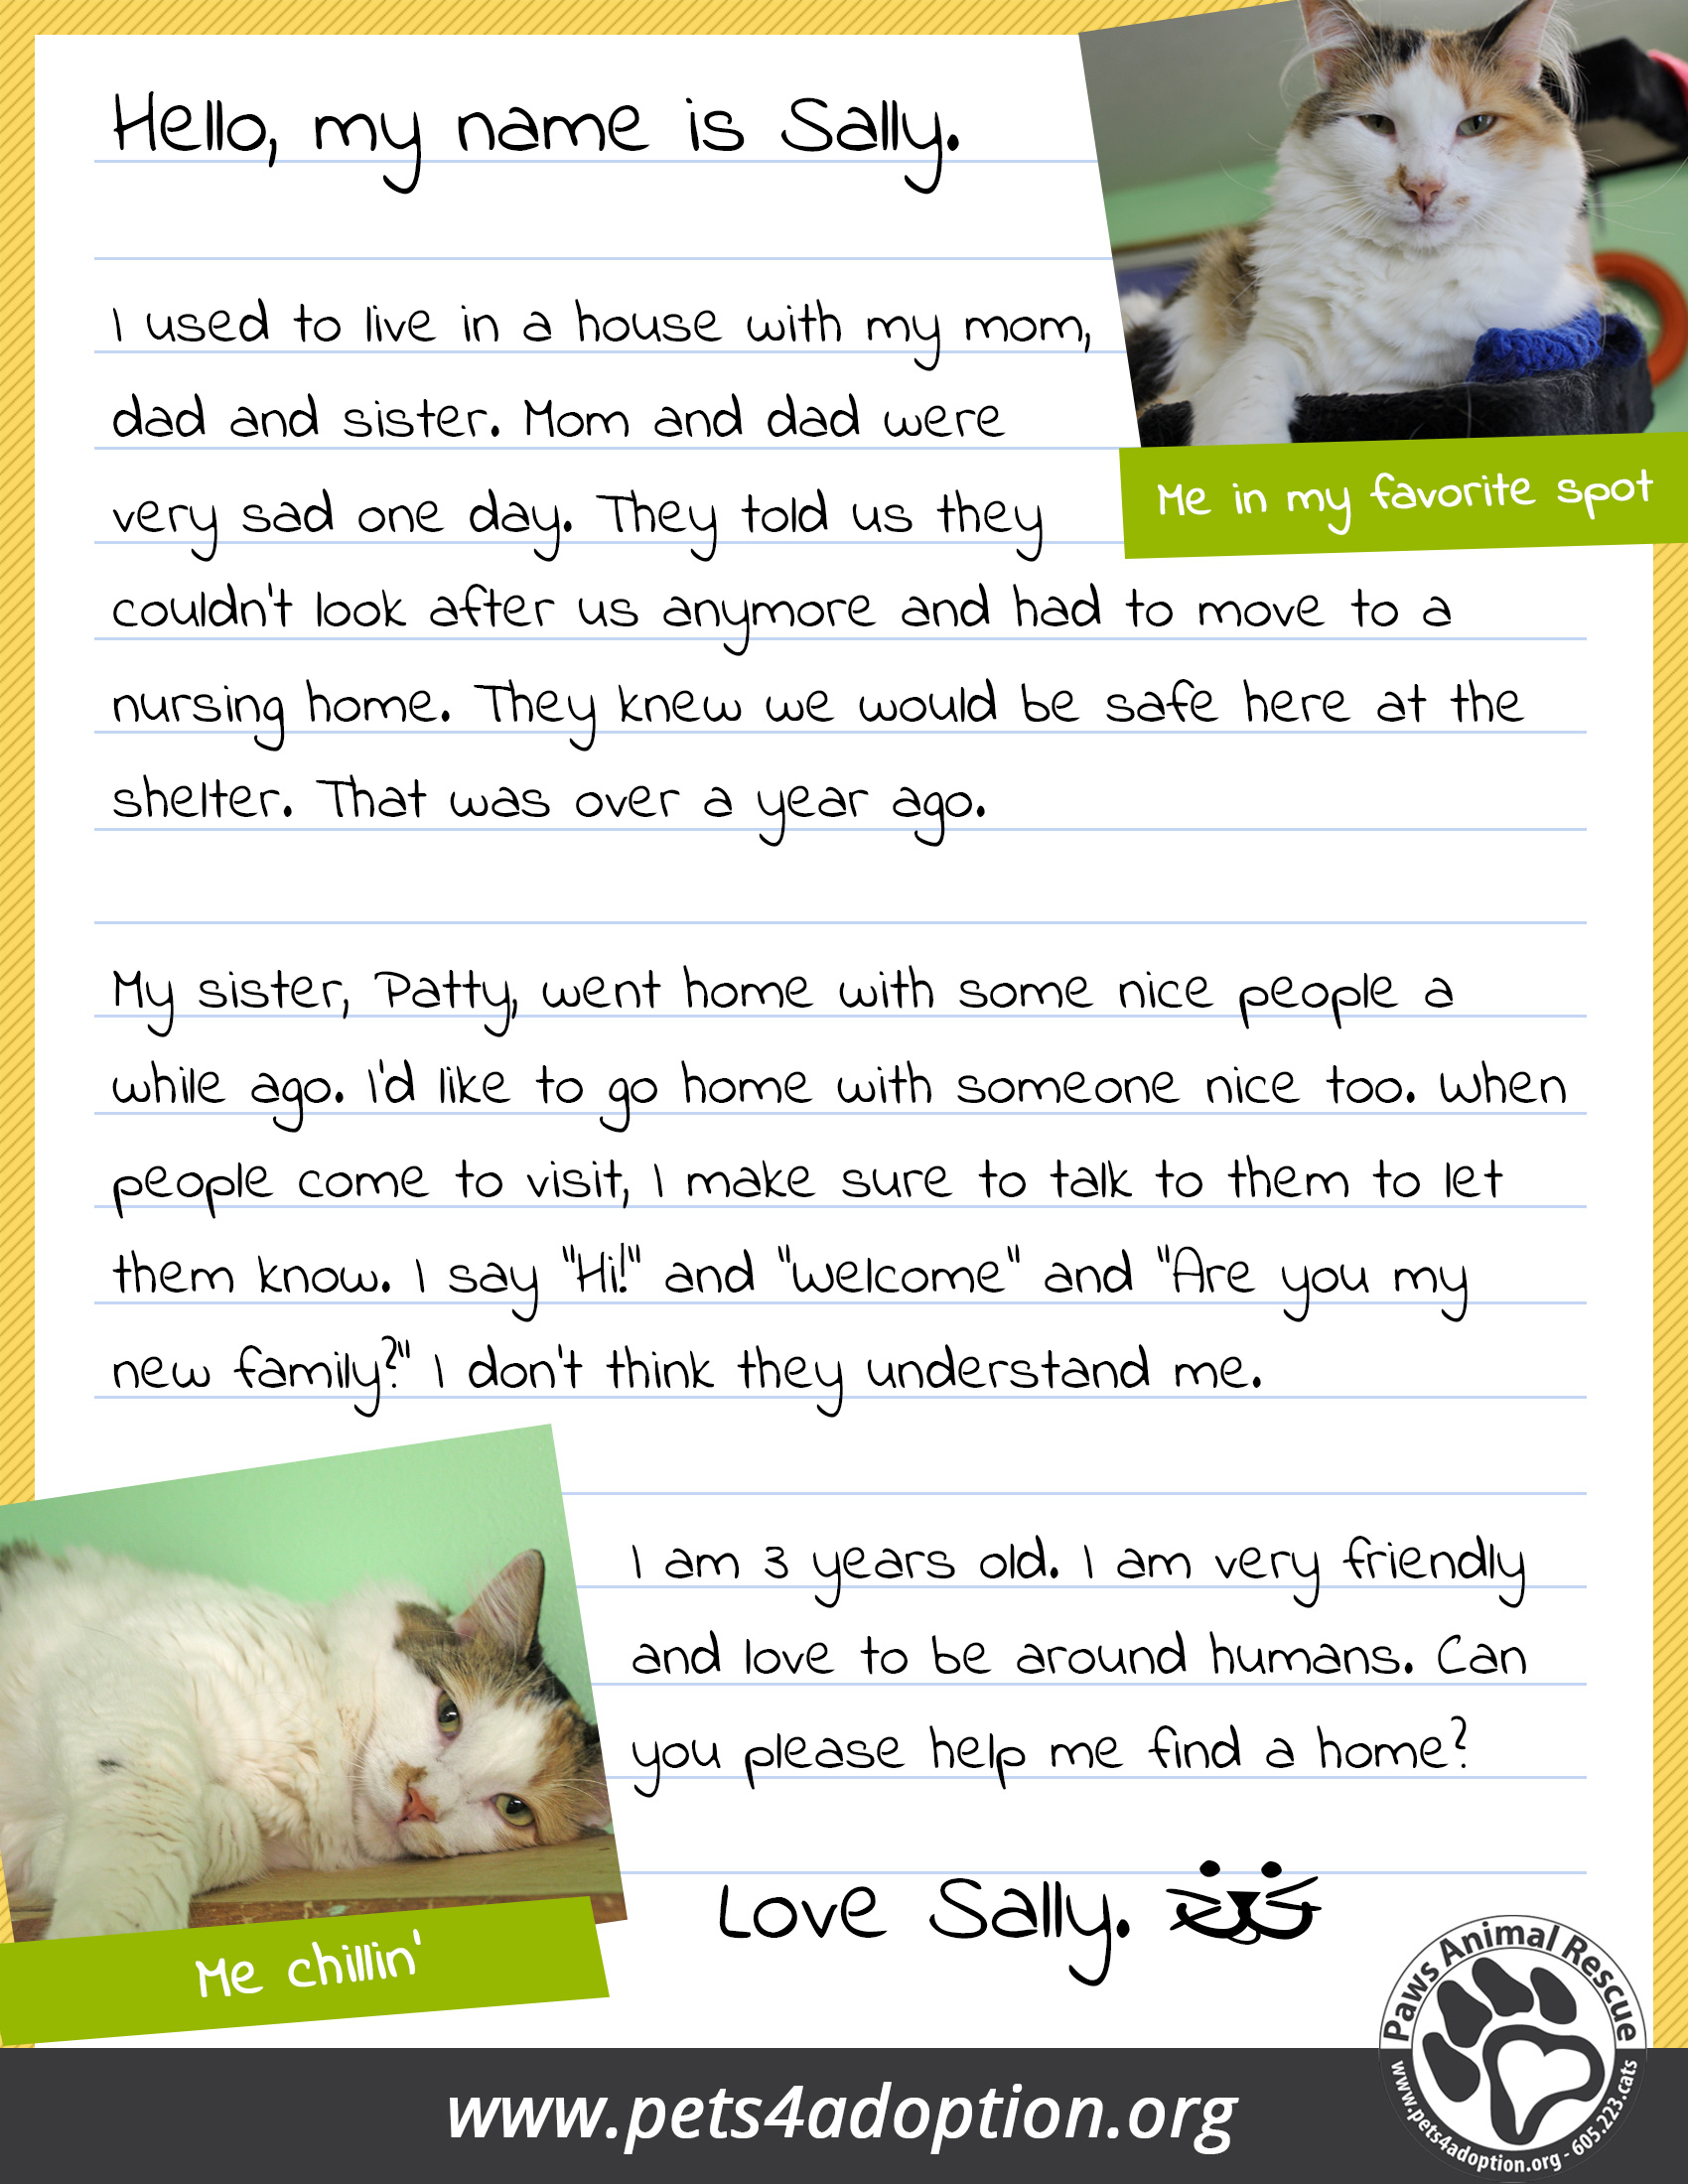 Hello, my name is Sally.
I used to live in a house with my mom,
dad and sister. Mom and dad were
very sad one day. They told us they
couldn't look after us anymore and had to move to a
nursing home. They knew we would be safe here at the
shelter. That was over a year ago.
Me in my favorite spot
My sister, Patty, went home with some nice people a
while ago. I'd like to go home with someone nice too. When
people come to visit, I make sure to talk to them to let
them know. I say "Hi!" and "Welcome" and "Are you my
new family?" I don't think they understand me.
I am 3 years old. I am very friendly
and love to be around humans. Can
you please help me find a home?
Love Sally.
Me chillin'
www.pets4adoption.org
Paws Animal Rescue
www.pets4adoption.org - 605.223.cats